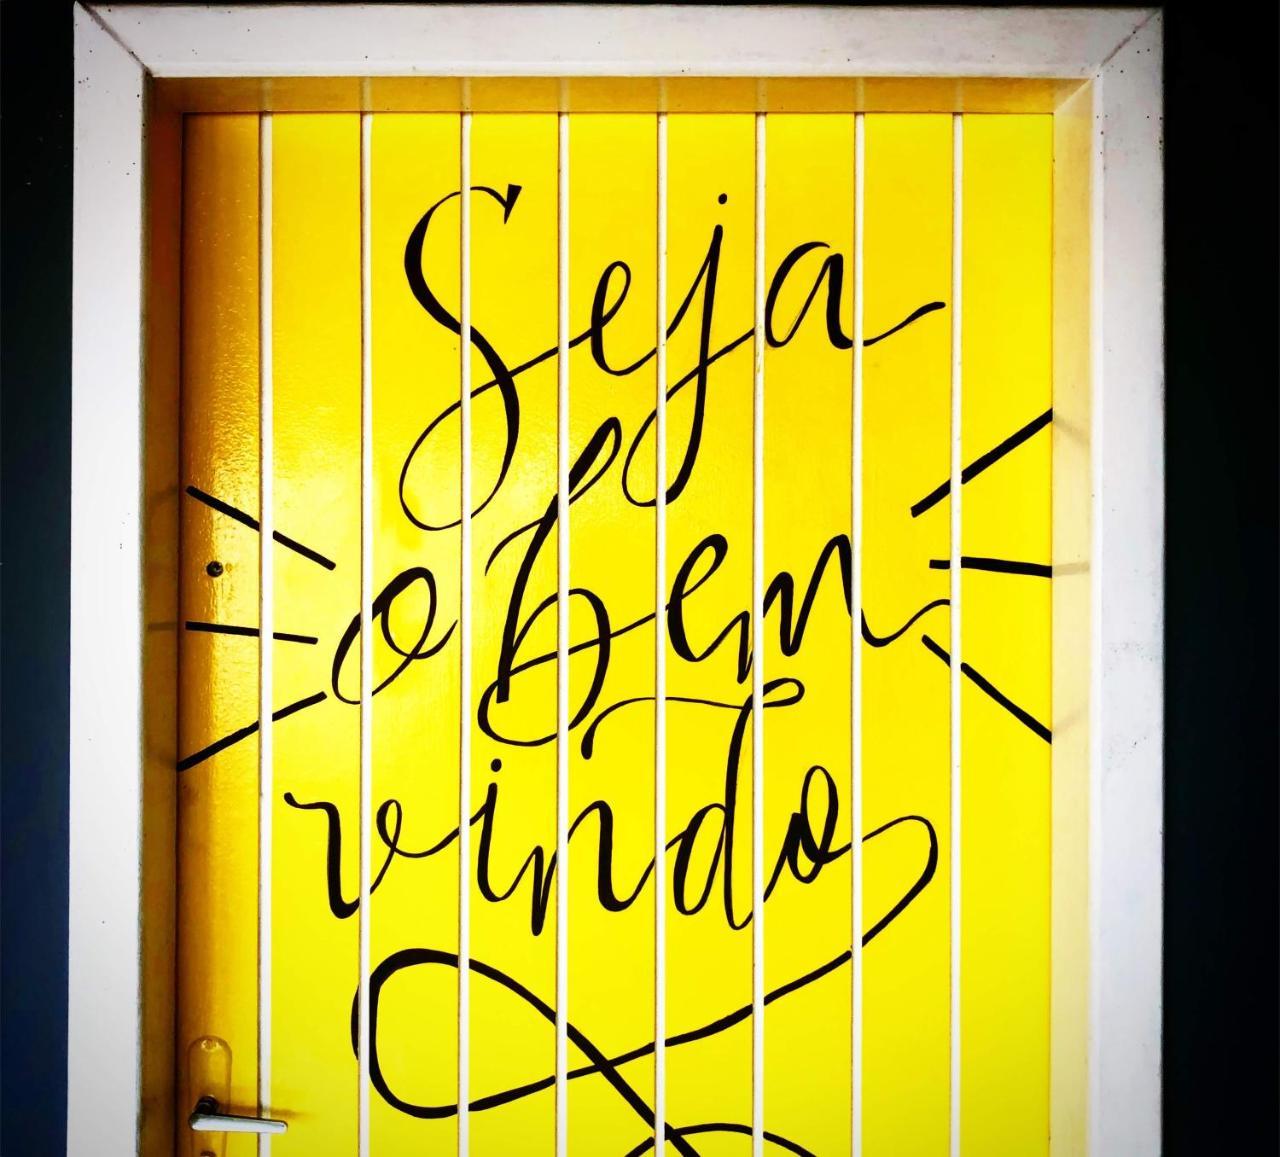 Seja
o bem
vindo